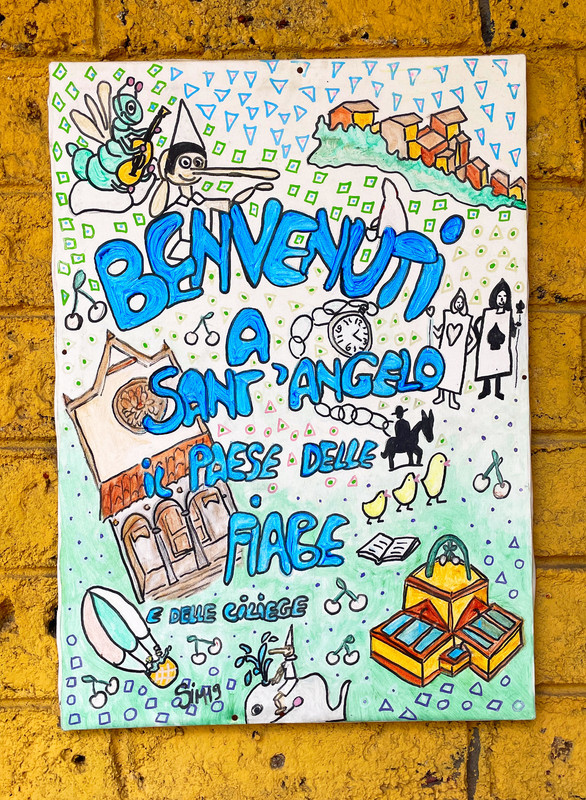 BENVENUTI
A
SANT'ANGELO
iL PAESE DELLE
FiABE
E DELLE CiLiEGE